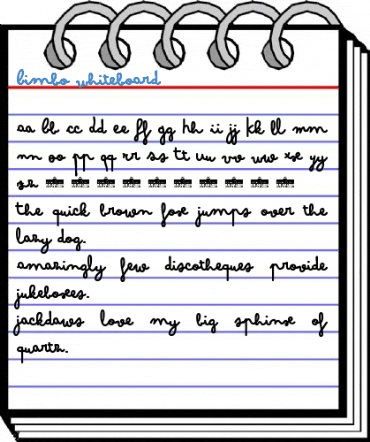 bimbo whiteboard
aa bb cc dd ee ff gg hh ii jj kk ll mm
nn oo pp qq rr ss tt uu vv ww xx yy
zz
the quick brown fox jumps over the
lazy dog.
amazingly few discotheques provide
jukeboxes.
jackdaws love my big sphinx of
quartz.